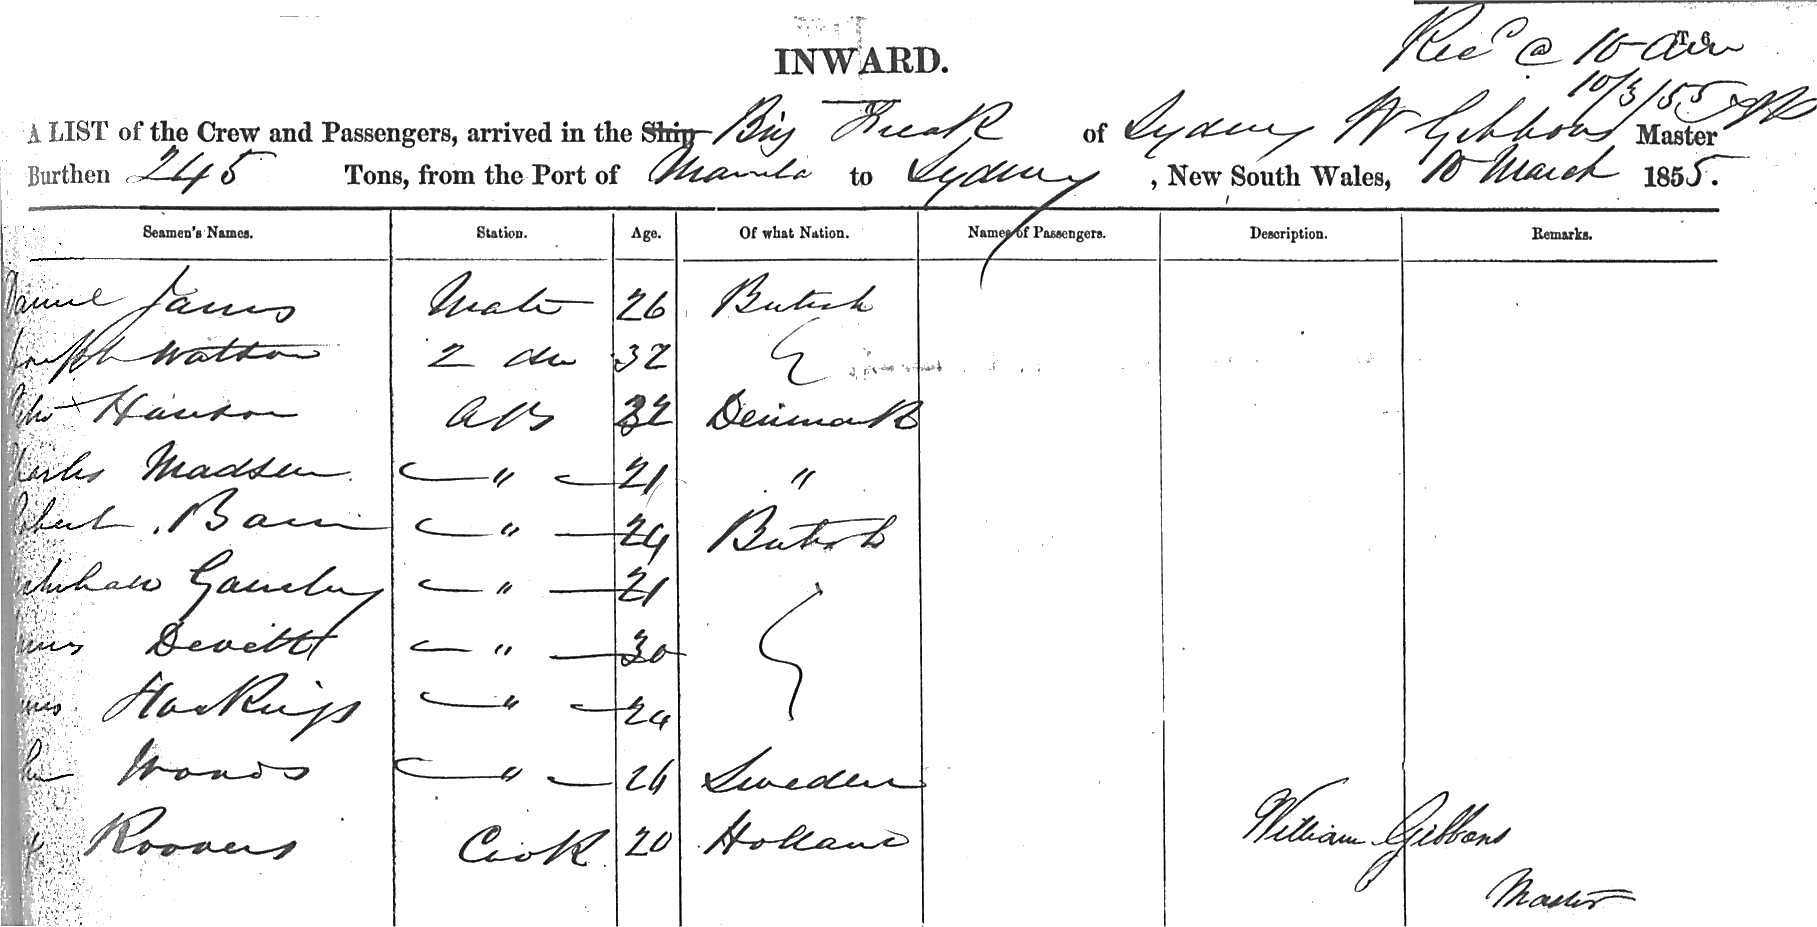 INWARD.
Recd @ 10 am
T. 6
10/3/55
A LIST of the Crew and Passengers, arrived in the Ship Brig Freak of Sydney W Gibbons Master
Burthen 245 Tons, from the Port of Manila to Sydney, New South Wales, 10 March 1855.
Seamen's Names. Station. Age. Of what Nation. Names of Passengers. Description. Remarks.
Daniel James Mate 26 British
Joseph Watson 2 do 32
Hanson AB 32 Denmark
Charles Madsen " 21 "
Robert " 24 British
" 21
Devitt " 30
Hoskings " 24
Woods " 26 Sweden
Roovers Cook 20 Holland
William Gibbons
Master